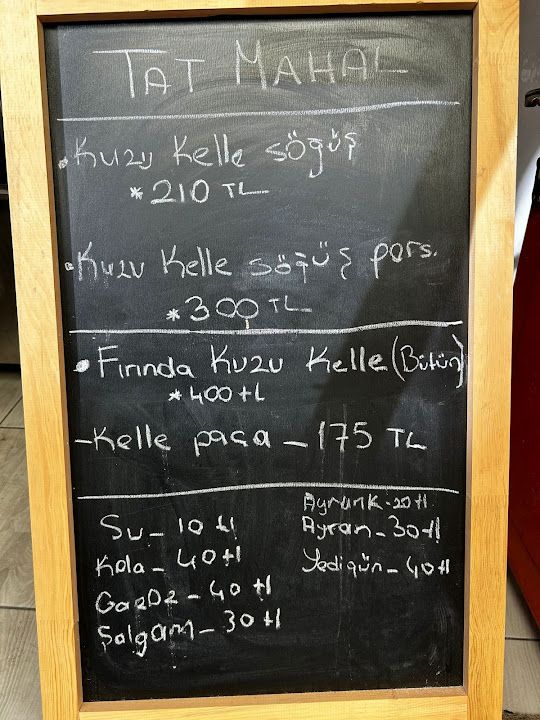 TAT MAHAL
• Kuzu Kelle söğüş
* 210 TL
• Kuzu Kelle söğüş pors.
* 300 TL
• Fırında Kuzu Kelle (Bütün)
* 400 tl
- Kelle paça - 175 TL
Su - 10 tl
Kola - 40 tl
GazOz - 40 tl
Şalgam - 30 tl
Ayran K - 20 tl
Ayran - 30 tl
Yedigün - 40 tl